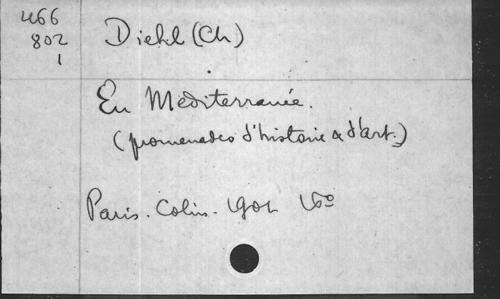 466
802
1
Diehl (Ch)
En Méditerranée.
(promenades d'histoire & d'art.)
Paris. Colin. 1901 16º